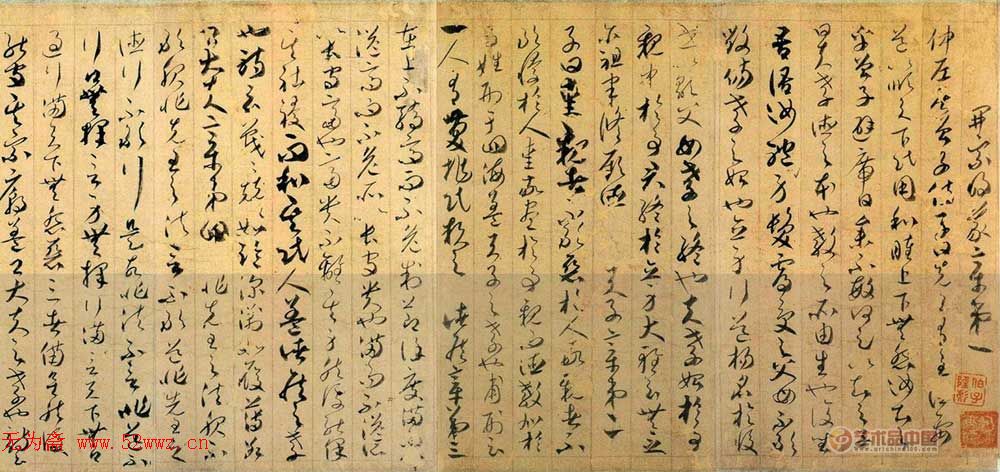 開宗明義章第一
仲尼居曾子侍子曰先王有至德要
道以順天下民用和睦上下無怨汝知之
乎曾子避席曰參不敏何足以知之子
曰夫孝德之本也教之所由生也復坐
吾語汝身體髮膚受之父母不敢
毀傷孝之始也立身行道揚名於後
世以顯父母孝之終也夫孝始於事
親中於事君終於立身大雅云無念
爾祖聿脩厥德 天子章第二
子曰愛親者不敢惡於人敬親者不
敢慢於人愛敬盡於事親而德教加於
百姓刑于四海蓋天子之孝也甫刑云
一人有慶兆民賴之 諸侯章第三
在上不驕高而不危制節謹度滿而不
溢高而不危所以長守貴也滿而不溢所
以長守富也富貴不離其身然後能保
其社稷而和其民人蓋諸侯之孝
也詩云戰戰兢兢如臨深淵如履薄冰
卿大夫章第四 非先王之法服不
敢服非先王之法言不敢道非先王之
德行不敢行是故非法不言非道不
行口無擇言身無擇行言滿天下無口
過行滿天下無怨惡三者備矣然後
能守其宗廟蓋卿大夫之孝也詩云
无为斋 www.52wwz.cn
艺术品中国
www.artchina100.com